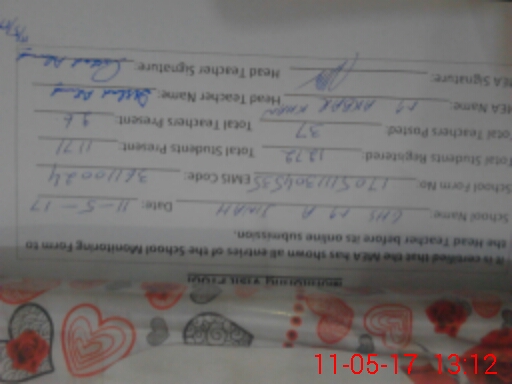 MONITORING VISIT PROOF
It is certified that the MEA has shown all entries of the School Monitoring Form to
the Head Teacher before its online submission.
School Name: GHS M A JINAH Date: 11-5-17
School Form No: EMIS Code: 36110024
Total Students Registered: 1272 Total Students Present: 1171
Total Teachers Posted: 37 Total Teachers Present: 36
MEA Name: M AKBAR KHAN Head Teacher Name:
MEA Signature: Head Teacher Signature:
11-05-17 13:12